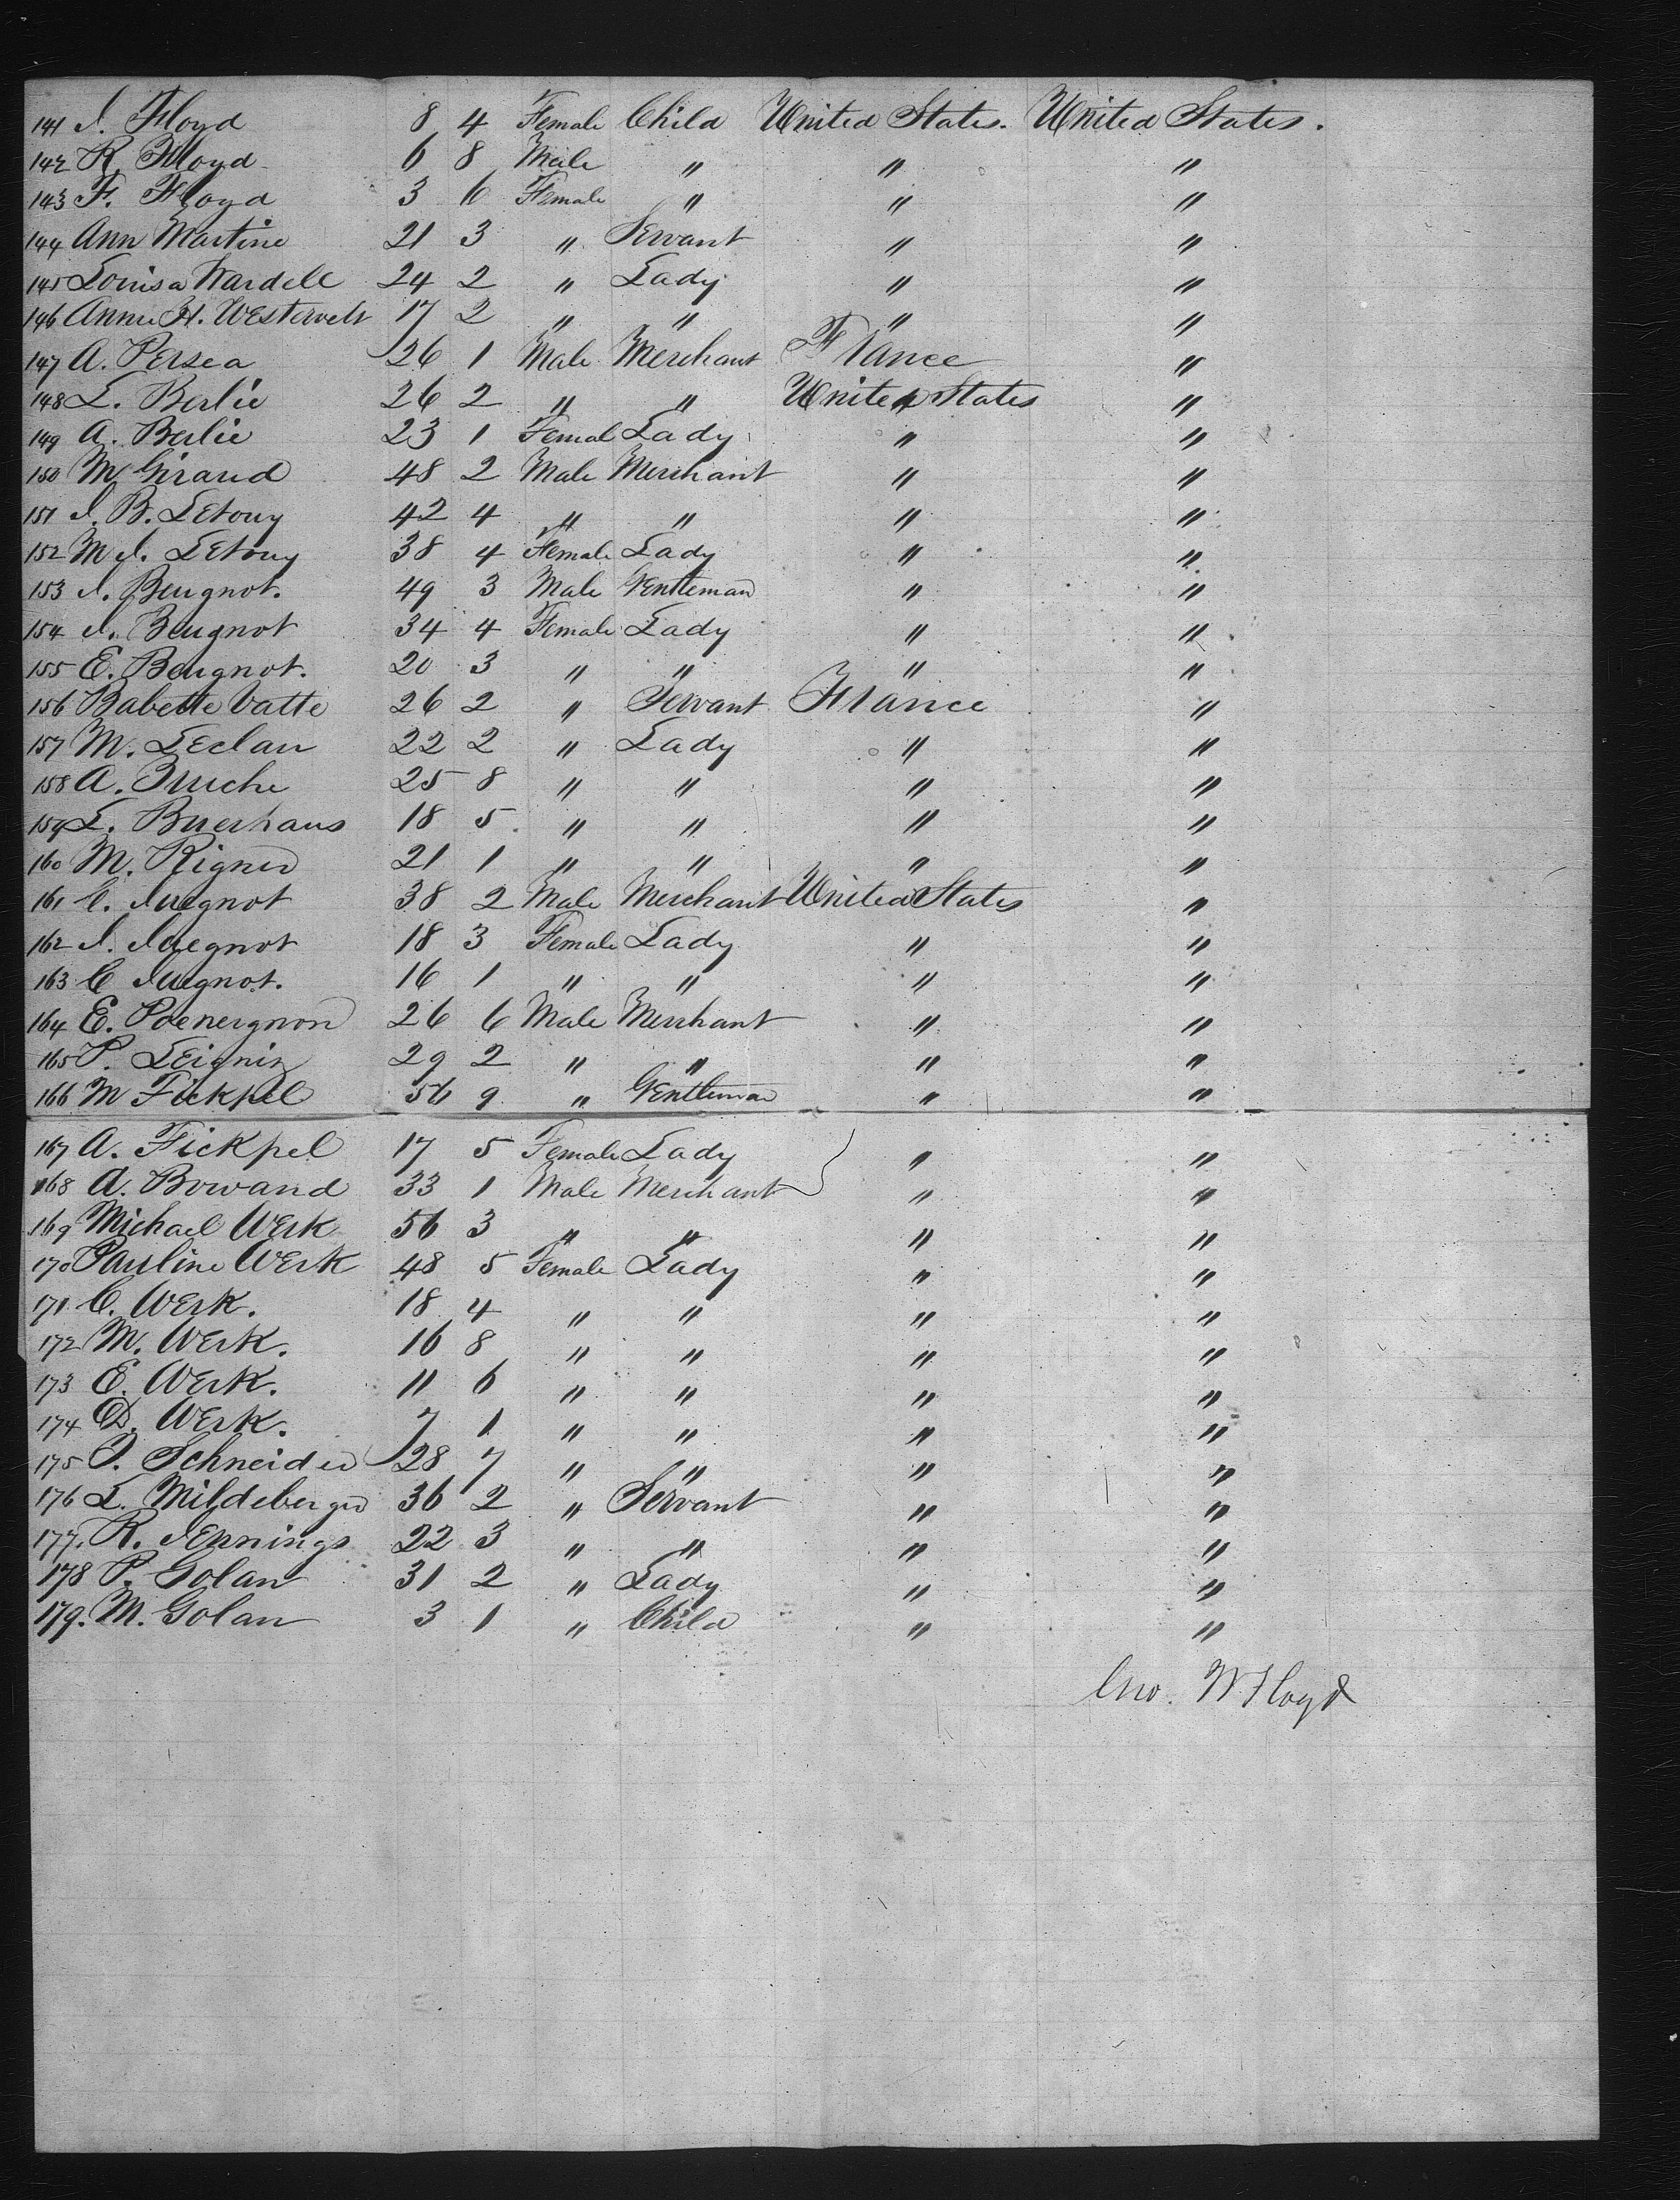 141 J. Floyd 8 4 Female Child United States. United States.
142 R. Floyd 6 8 Male " " "
143 F. Floyd 3 6 Female " " "
144 Ann Martine 21 3 " Servant " "
145 Louisa Wardell 24 2 " Lady " "
146 Annie H. Westervelt 17 2 " " " "
147 A. Persea 26 1 Male Merchant France "
148 L. Berlie 26 2 " " United States "
149 A. Berlie 23 1 Femal Lady " "
150 M Giraud 48 2 Male Merchant " "
151 J. B. Letouy 42 4 " " " "
152 M J. Letouy 38 4 Female Lady " "
153 J. Beugnot. 49 3 Male Gentleman " "
154 J. Beugnot 34 4 Female Lady " "
155 E. Beugnot. 20 3 " " " "
156 Babette Vatte 26 2 " Servant France "
157 M. Leclau 22 2 " Lady " "
158 A. Bruche 25 8 " " " "
159 L. Buerhaus 18 5 " " " "
160 M. Rigner 21 1 " " " "
161 C. Juegnot 38 2 Male Merchant United States "
162 J. Juegnot 18 3 Female Lady " "
163 C Juegnot. 16 1 " " " "
164 E. Poenergnon 26 6 Male Merchant " "
165 P. Leignix 29 2 " " " "
166 M Fickpel 56 9 " Gentleman " "
167 A. Fickpel 17 5 Female Lady " "
168 A. Bowand 33 1 Male Merchant " "
169 Michael Werk 56 3 " " " "
170 Pauline Werk 48 5 Female Lady " "
171 C. Werk. 18 4 " " " "
172 M. Werk. 16 8 " " " "
173 E. Werk. 11 6 " " " "
174 D. Werk. 7 1 " " " "
175 P. Schneider 28 7 " " " "
176 L. Mildeberger 36 2 " Servant " "
177. R. Jennings 22 3 " " " "
178 P. Golan 31 2 " Lady " "
179. M. Golan 3 1 " Child " "
Jno. W Floyd